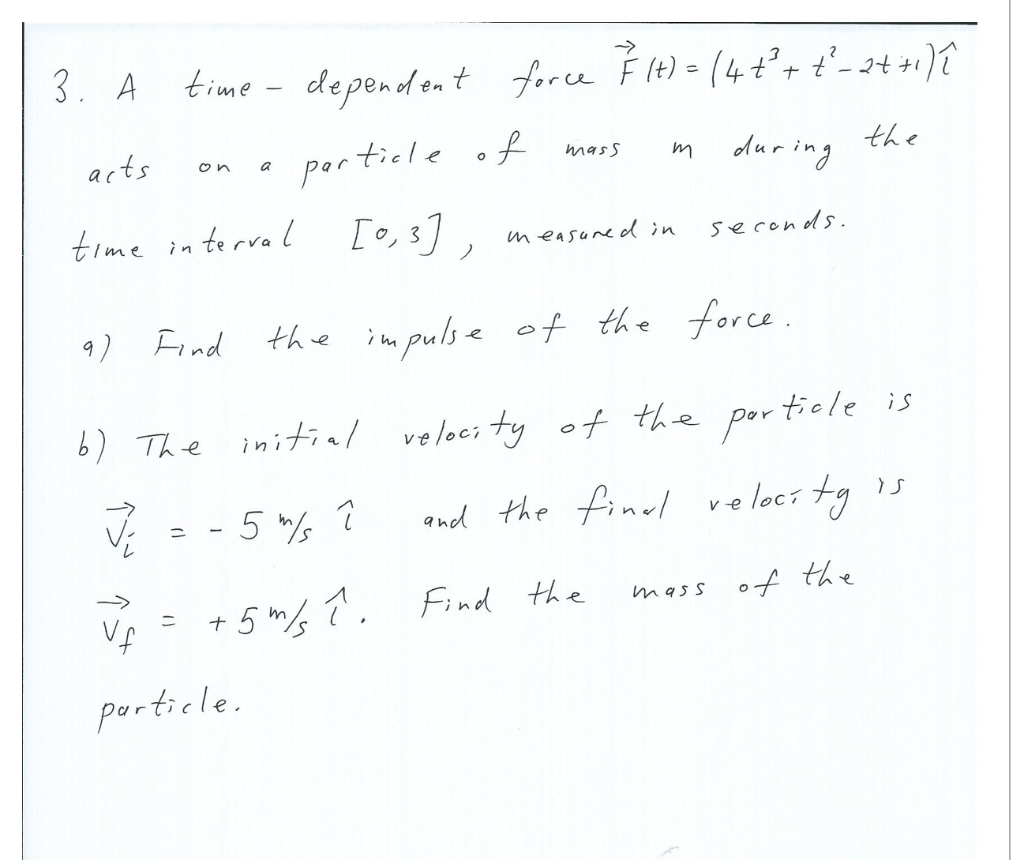 3. A time - dependent force F⃗(t) = (4t³ + t² - 2t + 1) î
acts on a particle of mass m during the
time interval [0, 3], measured in seconds.
a) Find the impulse of the force.
b) The initial velocity of the particle is
v⃗ᵢ = - 5 m/s î and the final velocity is
v⃗f = + 5 m/s î. Find the mass of the
particle.